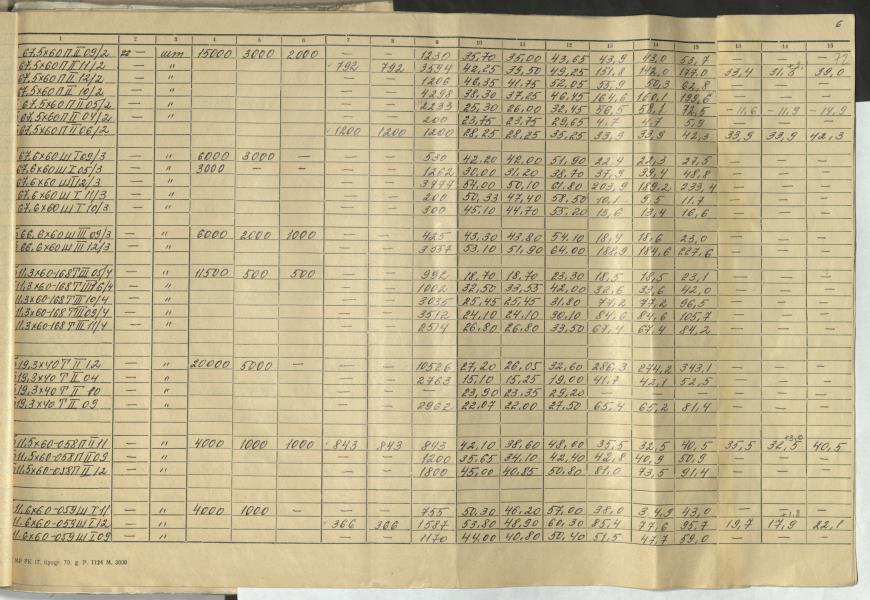 6
1 2 3 4 5 6 7 8 9 10 11 12 13 14 15 13 14 15
72
67,5x60 П II 09/2 — шт 15000 3000 2000 — — 1230 35,70 35,00 43,65 43,9 43,0 53,7 — —
67,5x60 П II 11/2 — " 792 792 3594 42,25 39,50 49,25 151,8 142,0 177,0 33,4 31,3 39,0
67,5x60 П II 12/2 — " — — 1206 46,35 41,75 52,05 55,9 50,3 62,8 — — —
67,5x60 П II 10/2 — " — — 4298 38,30 37,25 46,45 164,6 160,1 199,6 — — —
67,5x60 П II 05/2 — " — — 2233 25,30 26,00 32,45 56,5 58,1 72,5 -11,6 -11,9 -14,9
68,5x60 П II 04/2 — " — — 200 23,75 23,75 29,65 4,7 4,7 5,9 — — —
67,5x60 П II 06/2 — " 1200 1200 1200 28,25 28,25 35,25 33,9 33,9 42,3 33,9 33,9 42,3
67,6x60 Ш I 09/3 — " 6000 3000 — — — 530 42,20 42,00 51,90 22,4 22,3 27,5 — — —
67,6x60 Ш I 05/3 — " 3000 — — — — 1262 30,00 31,20 38,70 37,9 39,4 48,8 — — —
67,6x60 Ш I 12/3 — " — — 54,00 50,10 61,80 203,9 189,2 233,4 — — —
67,6x60 Ш I 11/3 — " — — 200 50,33 47,40 58,50 10,1 9,5 11,7 — — —
67,6x60 Ш I 10/3 — " — — 300 45,10 44,70 55,20 13,6 13,4 16,6 — — —
66,6x60 Ш III 09/3 — " 6000 2000 1000 — — 425 43,30 43,80 54,10 18,4 18,6 23,0 — — —
66,6x60 Ш III 12/3 — " — — 53,10 51,90 64,00 184,6 227,6 — — —
11,3x60-168 Т III 05/4 — " 11500 500 500 — — 992 18,70 18,70 23,30 18,5 18,5 23,1 — — —
11,3x60-168 Т III 06/4 — " — — 1002 32,50 33,55 42,00 32,6 33,6 42,0 — — —
11,3x60-168 Т III 10/4 — " — — 3035 25,45 25,45 31,80 77,2 77,2 96,5 — — —
11,3x60-168 Т III 09/4 — " — — 3512 24,10 24,10 30,10 84,6 84,6 105,7 — — —
11,3x60-168 Т III 11/4 — " — — 2514 26,80 26,80 33,50 67,4 67,4 84,2 — — —
19,3x40 Т II 12 — " 20000 5000 — — — 10526 27,20 26,05 32,60 286,3 274,2 343,1 — — —
19,3x40 Т II 04 — " — — 2763 15,10 15,25 19,00 41,7 42,1 52,5 — — —
19,3x40 Т II 10 — " — — — 23,90 23,35 29,20 — — — — — —
19,3x40 Т II 09 — " — — 2962 22,07 22,00 27,50 65,4 65,2 81,4 — — —
11,5x60-058 П II 11 — " 4000 1000 1000 843 843 843 42,10 38,60 48,00 35,5 32,5 40,5 35,5 32,5 40,5
11,5x60-058 П II 09 — " — — 1200 35,65 34,10 42,40 42,8 40,9 50,9 — — —
11,5x60-058 П II 12 — " — — 1800 45,00 40,85 50,80 81,0 73,5 91,4 — — —
11,6x60-059 Ш I 11 — " 4000 1000 — — — 755 50,30 46,20 57,00 38,0 34,9 43,0 — — —
11,6x60-059 Ш I 12 — " 366 366 1587 53,80 48,90 60,30 85,4 77,6 95,7 19,7 17,9 22,1
11,6x60-059 Ш I 09 — " — — 1170 44,00 40,80 50,40 51,5 47,7 59,0 — — —
КР РК 17. tipogr. 70. g. P. 1124 M. 3000